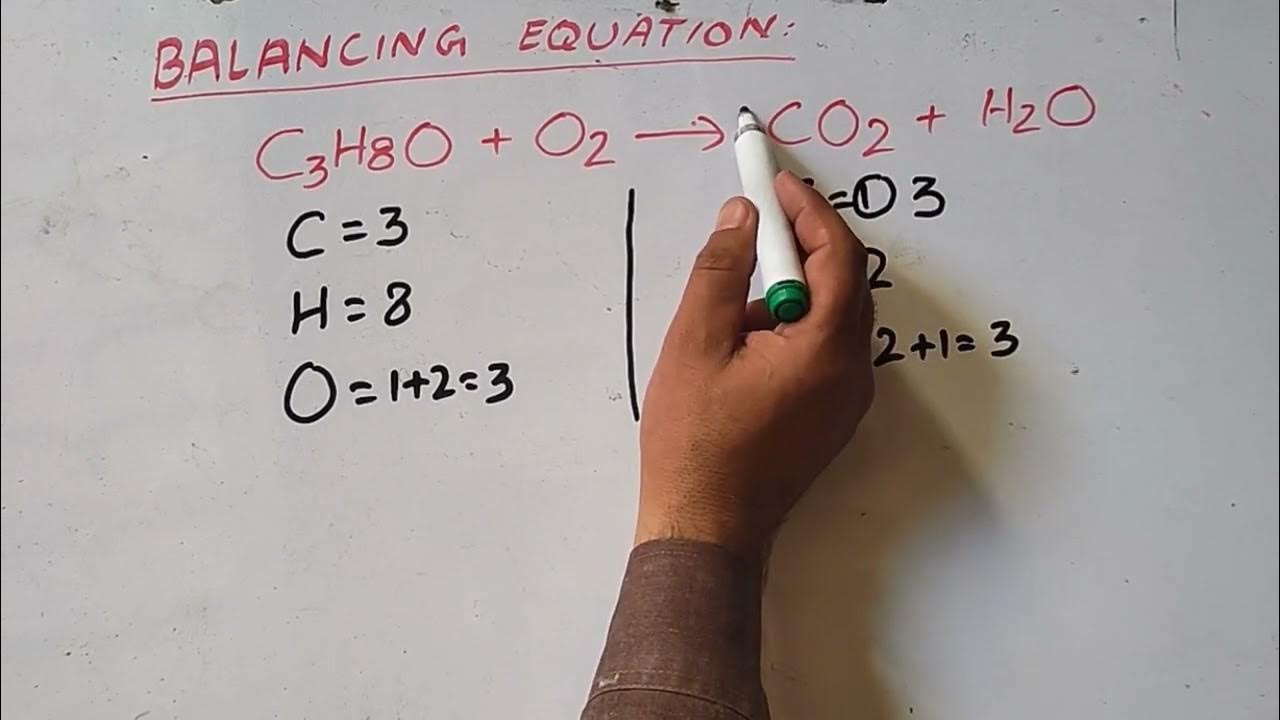 BALANCING EQUATION:
C3H8O + O2 → CO2 + H2O
C = 3
= 1 3
H = 8
2
O = 1+2=3
2+1= 3